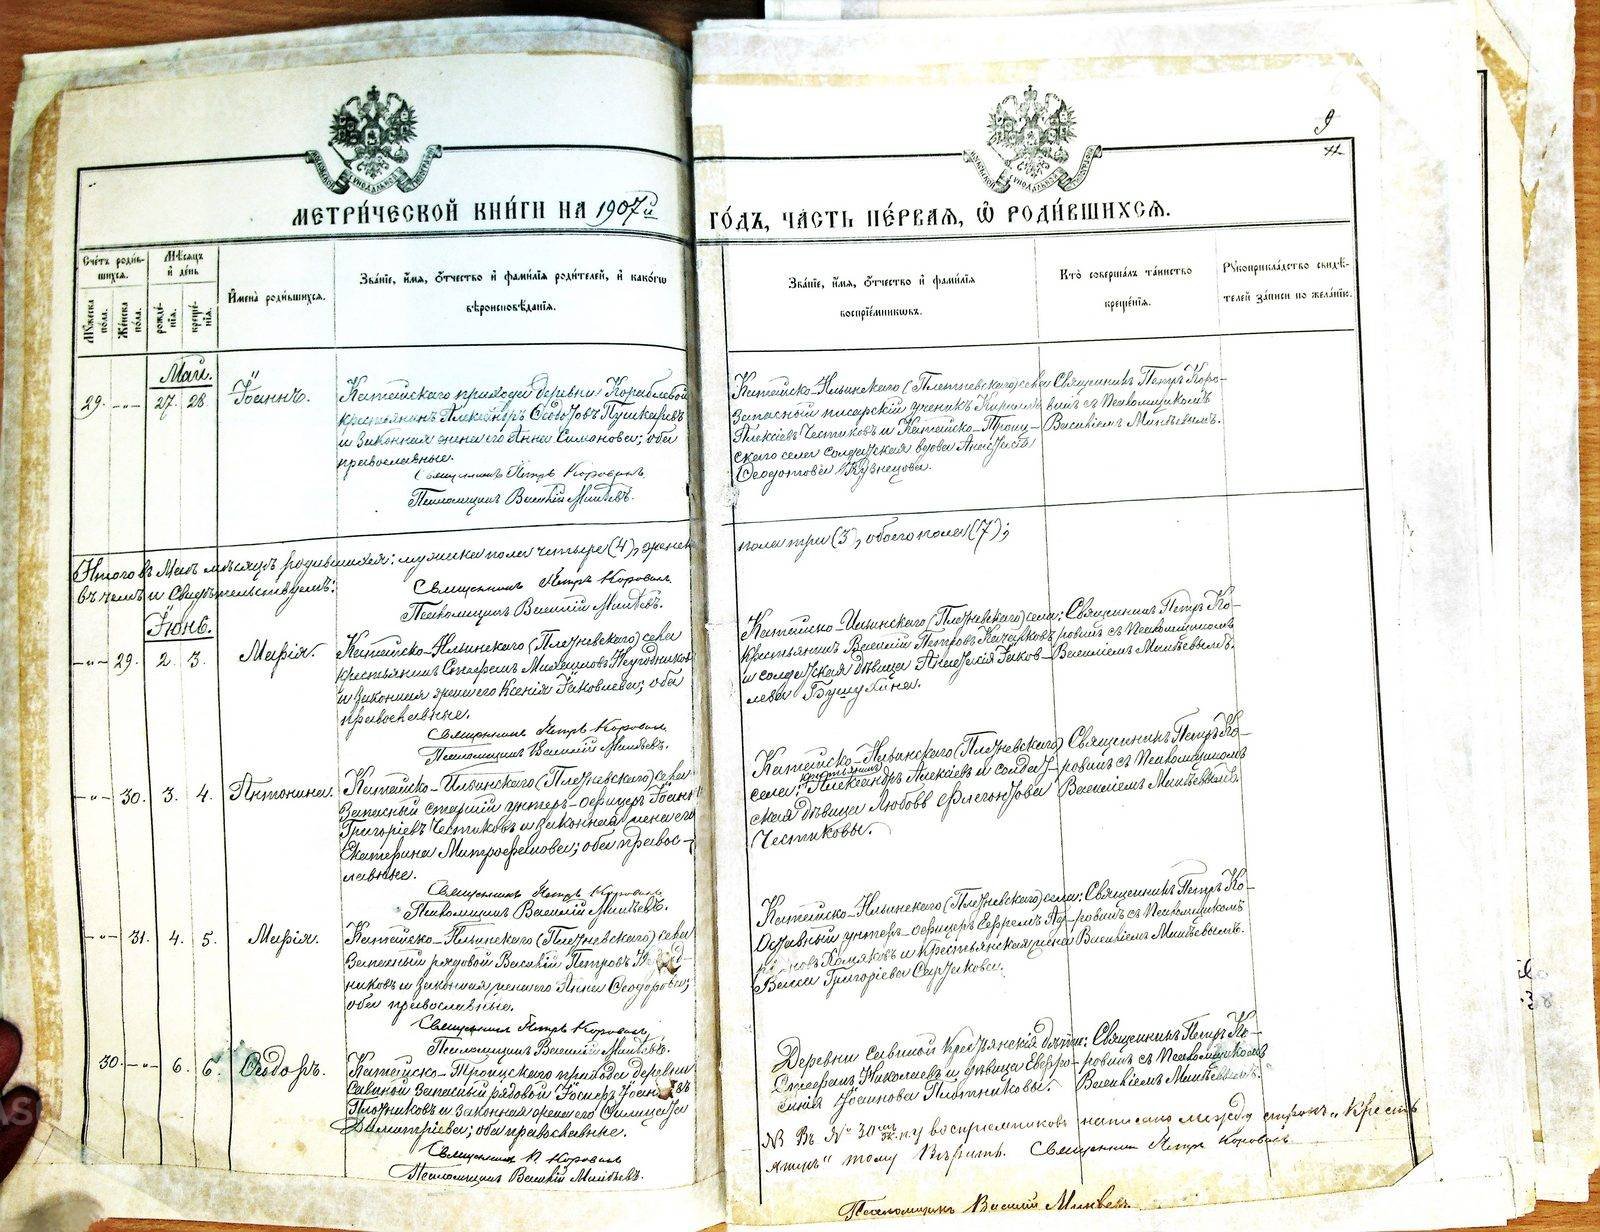 МЕТРИ́ЧЕСКОЙ КНИ́ГИ НА 1907й
ГО́ДЪ, ЧА́СТЬ ПЕ́РВАЯ, Ѿ РОДИ́ВШИХСЯ.
9
Счетъ роди́вшихся.
Мѣсяцъ и́ день
Имена̀ роди́вшихся.
Зва́нїе, и́мя, о́тчество и҆ фами́лїя роди́телей, и҆ како́гѡ
вѣроисповѣ́данїя.
Зва́нїе, и́мя, о́тчество и҆ фами́лїя
воспрїе́мниковъ.
Кто̀ соверша́лъ та́инство
креще́нїя.
Рукоприкла́дство свидѣ́-
телей за́писи по жела́нїю.
Му́жеска по́ла.
Же́нска по́ла.
рожде́нїя.
креще́нїя.
Май.
29. -„- 27. 28 Іоаннъ.
Катайскаго прихода деревни Корабле́вой
крестьянинъ Александръ Ѳедотовъ Пушкаревъ
и законная жена его Анна Симонова; оба
православные.
Священникъ Петръ Коровинъ
Псаломщикъ Василій Михѣевъ.
Катайско-Ильинскаго (Плетневскаго) села
Запасный писарскій ученикъ
Алексѣевъ Честиковъ и Катайско-Троиц-
скаго села солдатская вдова Анастасія
Ѳеодотова Кузнецова.
Священникъ Петръ Коро-
винъ съ Псаломщикомъ
Василіемъ Михѣевымъ.
Итого въ Маѣ мѣсяцѣ родившихся: мужска пола четыре (4), женск
пола три (3), обоего пола (7);
въ чемъ и свидѣтельствуемъ:
Священникъ Петръ Коровинъ
Псаломщикъ Василій Михѣевъ.
Іюнь.
-„- 29. 2. 3. Марія.
Катайско-Ильинскаго (Плетневскаго) села
крестьянинъ Стефанъ
и законная жена его Ксенія Іаковлева; оба
православные.
Священникъ Петръ Коровинъ
Псаломщикъ Василій Михѣевъ.
Катайско-Ильинскаго (Плетневскаго) села:
крестьянинъ Василій Петровъ
и солдатская дѣвица Анастасія Іаков-
лева
Священникъ Петръ Ко-
ровинъ съ Псаломщикомъ
Василіемъ Михѣевымъ.
-„- 30. 3. 4. Антонина.
Катайско-Ильинскаго (Плетневскаго) села
Запасный старшій унтеръ-офицеръ Іоаннъ
Григоріевъ Честиковъ и законная жена его
Екатерина Митрофанова; оба право-
славные.
Священникъ Петръ Коровинъ
Псаломщикъ Василій Михѣевъ.
Катайско-Ильинскаго (Плетневскаго)
села: крестьянинъ Александръ Алексѣевъ и солдат-
ская дѣвица Любовь Флегонтова
Честиковы.
Священникъ Петръ Ко-
ровинъ съ Псаломщикомъ
Василіемъ Михѣевымъ.
-„- 31. 4. 5. Марія.
Катайско-Ильинскаго (Плетневскаго) села
Запасный рядовой Василій Петровъ
никовъ и законная жена его Анна Ѳеодорова;
оба православные.
Священникъ Петръ Коровинъ
Псаломщикъ Василій Михѣевъ.
Катайско-Ильинскаго (Плетневскаго) села:
Отставный унтеръ-офицеръ Ефремъ
и крестьянская жена
Васса Григоріева
Священникъ Петръ Ко-
ровинъ съ Псаломщикомъ
Василіемъ Михѣевымъ.
30. -„- 6. 6. Ѳеодоръ.
Катайско-Троицкаго прихода деревни
Савиной Запасный рядовой Іосифъ
Плотниковъ и законная жена его
Димитріева; оба православные.
Священникъ П. Коровинъ
Псаломщикъ Василій Михѣевъ.
Деревни Савиной Крестьянскія дѣти:
Стефанъ Николаевъ и дѣвица Евфро-
синія Іоаннова Плотниковы.
Священникъ Петръ Ко-
ровинъ съ Псаломщикомъ
Василіемъ Михѣевымъ.
NB Въ № 30мъ ж.п. у воспріемниковъ написано между строкъ „крестья-
нинъ“ тому вѣрить. Священникъ Петръ Коровинъ
Псаломщикъ Василій Михѣевъ